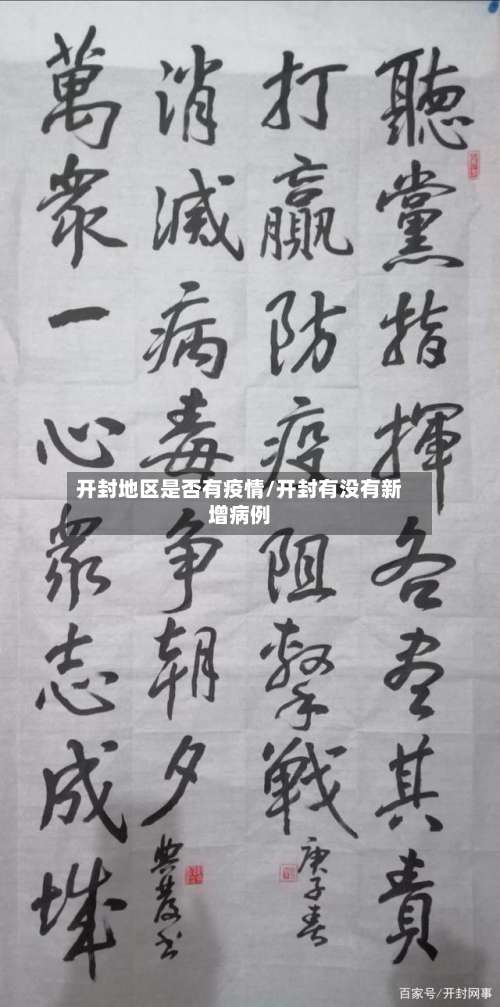 聽黨指揮各盡其責
打贏防疫阻擊戰
庚子春
消滅病毒争朝夕
典發书
萬衆一心衆志成城
开封地区是否有疫情/开封有没有新
增病例
百家号/开封网事